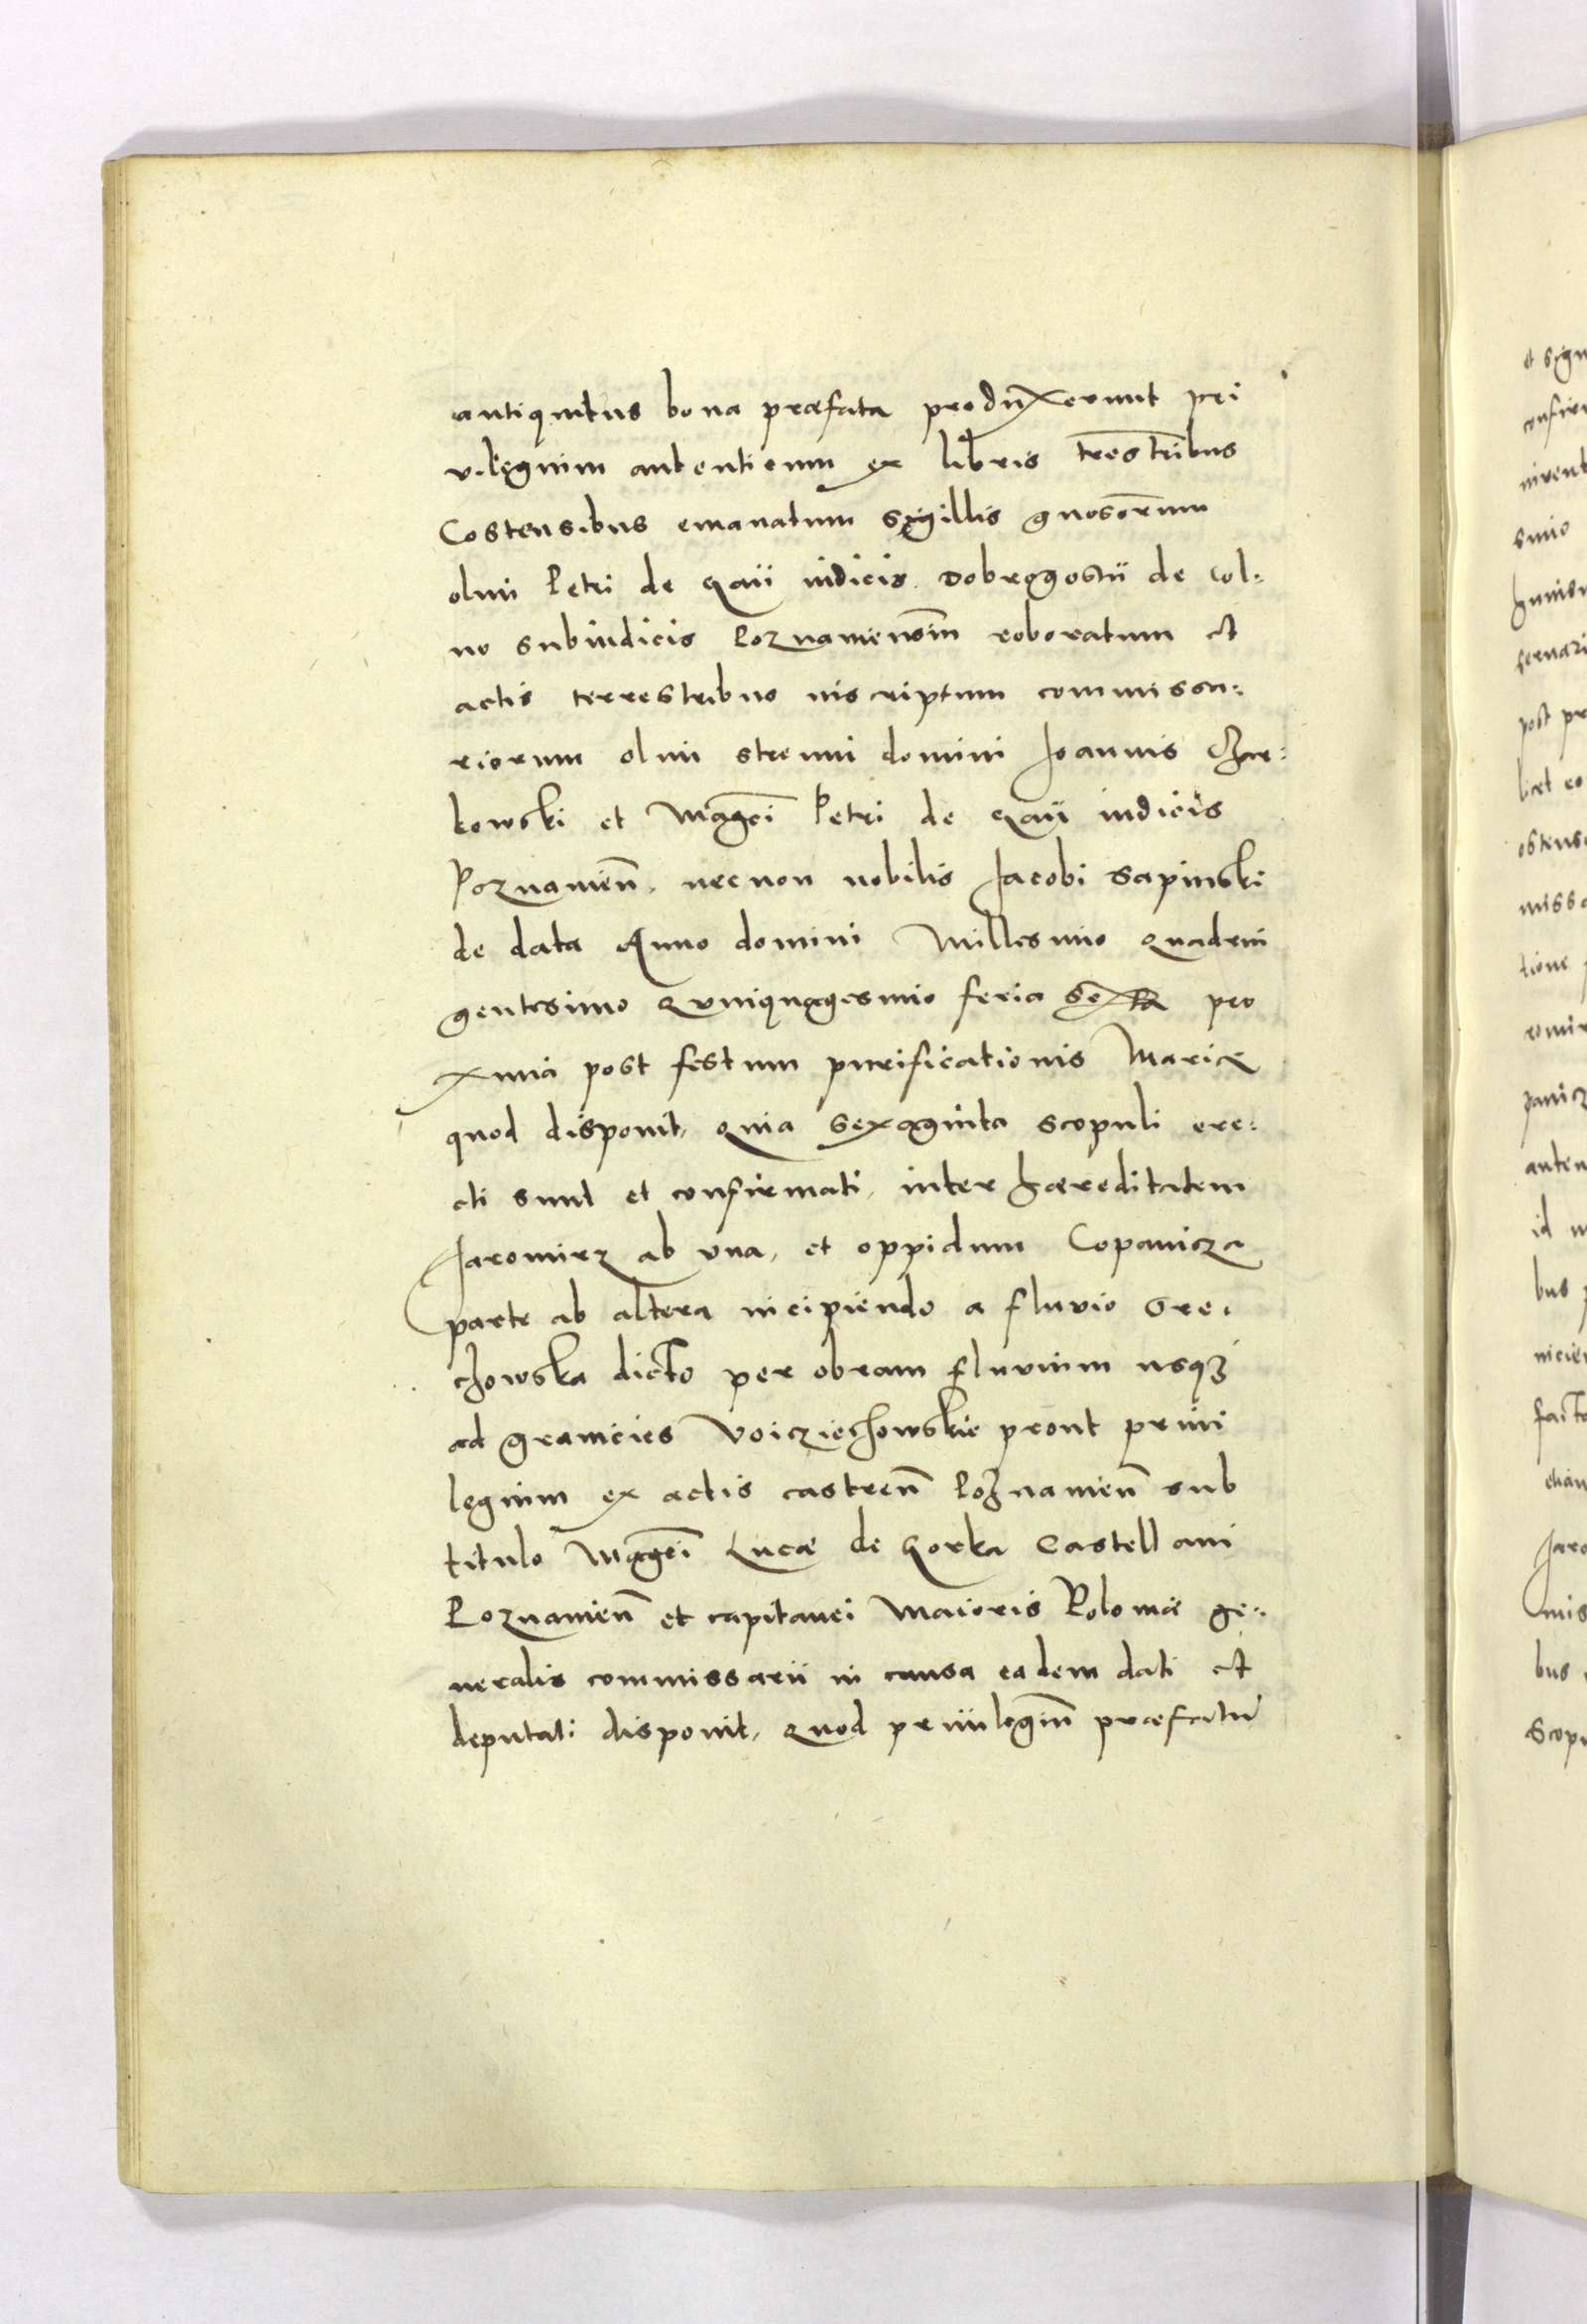 antiquitus bona præfata produxerunt pri
vilegium autenticum ex libris trestribus
Costensibus emanatum sigillis gnosorum
olim Petri de Gaii iudicis Dobrogostii de Col:
no subiudicis Poznaniensim roboratum et
actis terrestribus inscriptum commissa:
riorum olim strenui domini Joannis Char:
kowski et Magci Petri de Gaii iudicis
Poznanien̄. necnon nobilis Jacobi Sapinski
de data Anno domini Millesimo Quadrin
gentesimo Quinquagesimo feria Sexta pro
xima post festum purificationis Mariæ
quod disponit, quia sexaginta scopuli ere:
cti sunt et confirmati, inter hæreditatem
Jaromirz ab una, et oppidum Copanicza
parte ab altera incipiendo a fluvio Gre:
chowska dicto per obram fluvium usq3
ad granicies Voiciechowskie prout privi
legium ex actis castren̄ Poznanien̄ sub
titulo Magci Lucæ de Gorka Castellani
Poznanien̄ et capitanei Maioris Poloniæ ge:
neralis commissarii in causa eadem dati et
deputati disponit, quod privilegiū præfatū
et sign
nirent
post pr
bus
Jaro
mis
bus
Scopu